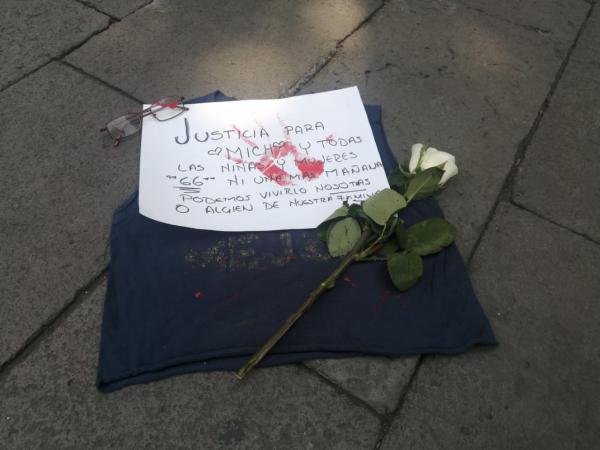 JUSTICIA PARA
♡MICH♡ Y TODAS
LAS NIÑAS Y MUJERES
"66" NI UNA MAS MAÑANA
PODEMOS VIVIRLO NOSOTRAS
O ALGIEN DE NUESTRA FAMILIA